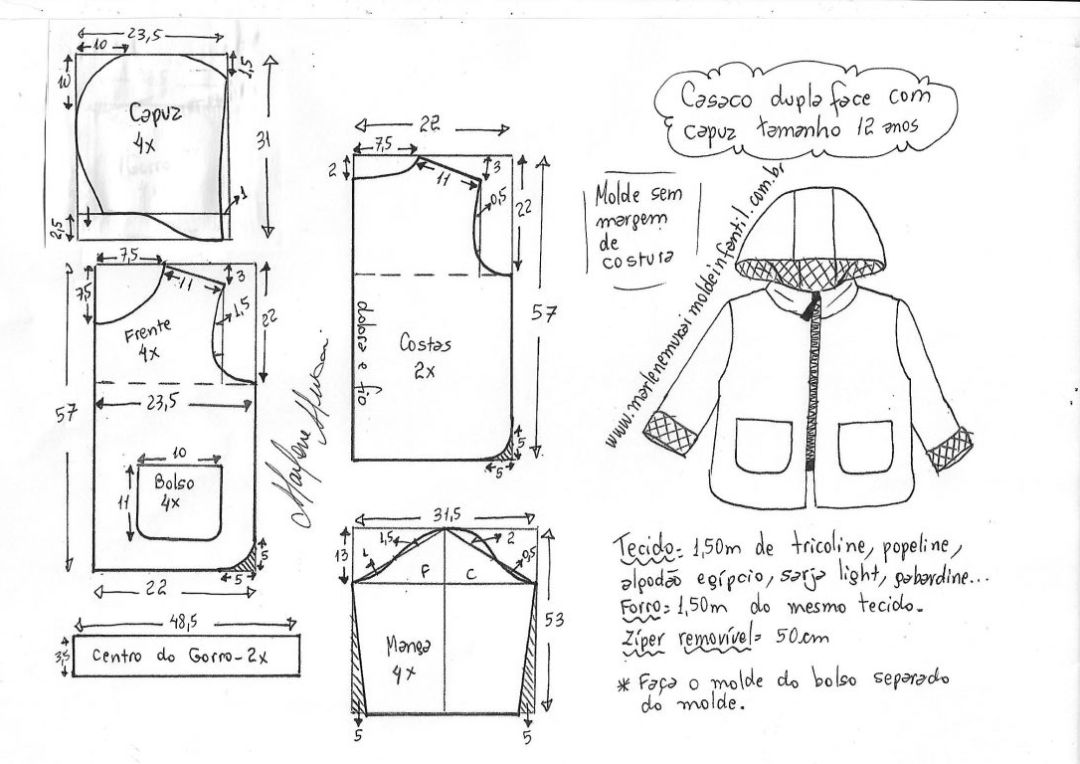 23,5
10
10
1,5
Capuz
4x
31
1
2,5
7,5
7,5
11
3
1,5
22
Frente
4x
57
23,5
10
Bolso
4x
11
5
5
22
48,5
3,5
Centro do Gorro-2x
Marlene Mukai
22
7,5
2
11
3
0,5
22
57
dobra e fio
Costas
2x
5
5
31,5
13
1
1,5
2
0,5
F
C
53
Manga
4x
5
5
Casaco dupla face com
capuz tamanho 12 anos
Molde sem
margem
de
costura
www.marlenemukaimoldeinfantil.com.br
Tecido= 1,50m de tricoline, popeline,
algodão egípcio, sarja light, gabardine...
Forro= 1,50m do mesmo tecido.
Zíper removível= 50cm
* Faça o molde do bolso separado
do molde.